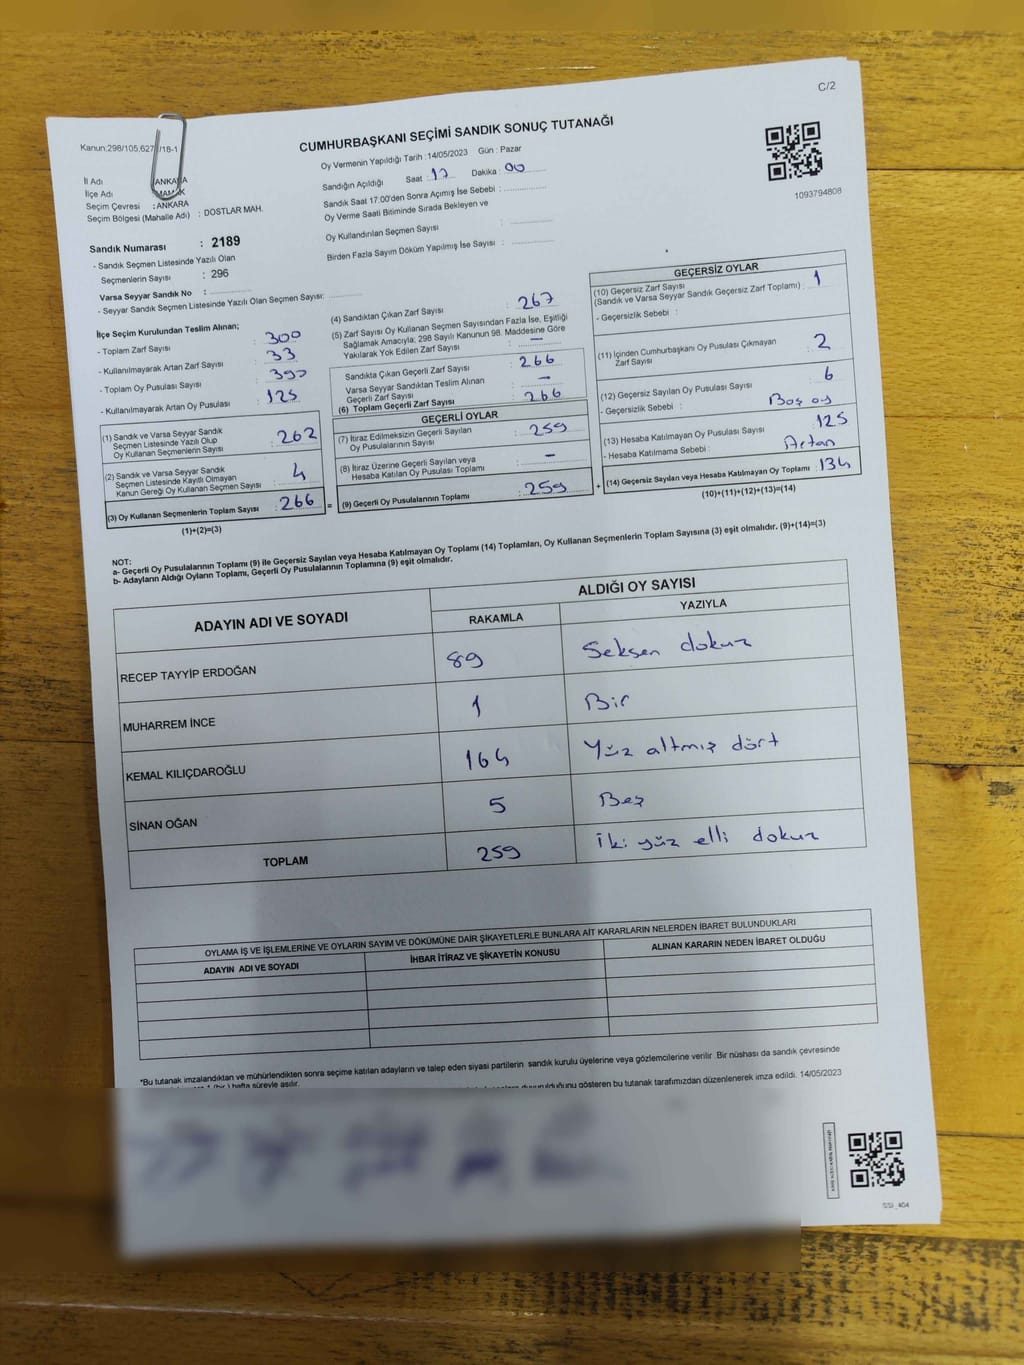 C/2
Kanun:298/105,627 /18-1
CUMHURBAŞKANI SEÇİMİ SANDIK SONUÇ TUTANAĞI
Oy Vermenin Yapıldığı Tarih : 14/05/2023 Gün : Pazar
Sandığın Açıldığı Saat 17 Dakika : 00
Sandık Saat 17:00'den Sonra Açımış İse Sebebi :
Oy Verme Saati Bitiminde Sırada Bekleyen ve
Oy Kullandırılan Seçmen Sayısı :
Birden Fazla Sayım Döküm Yapılmış İse Sayısı :
1093794808
İl Adı : ANKARA
İlçe Adı MAMAK
Seçim Çevresi : ANKARA
Seçim Bölgesi (Mahalle Adı) : DOSTLAR MAH.
Sandık Numarası : 2189
- Sandık Seçmen Listesinde Yazılı Olan
Seçmenlerin Sayısı : 296
Varsa Seyyar Sandık No :
- Seyyar Sandık Seçmen Listesinde Yazılı Olan Seçmen Sayısı:
İlçe Seçim Kurulundan Teslim Alınan;
- Toplam Zarf Sayısı : 300
- Kullanılmayarak Artan Zarf Sayısı : 33
- Toplam Oy Pusulası Sayısı :
- Kullanılmayarak Artan Oy Pusulası : 125
(1) Sandık ve Varsa Seyyar Sandık
Seçmen Listesinde Yazılı Olup
Oy Kullanan Seçmenlerin Sayısı : 262
(2) Sandık ve Varsa Seyyar Sandık
Seçmen Listesinde Kayıtlı Olmayan
Kanun Gereği Oy Kullanan Seçmen Sayısı : 4
(3) Oy Kullanan Seçmenlerin Toplam Sayısı : 266
(1)+(2)=(3)
(4) Sandıktan Çıkan Zarf Sayısı : 267
(5) Zarf Sayısı Oy Kullanan Seçmen Sayısından Fazla İse, Eşitliği
Sağlamak Amacıyla; 298 Sayılı Kanunun 98. Maddesine Göre
Yakılarak Yok Edilen Zarf Sayısı : —
Sandıkta Çıkan Geçerli Zarf Sayısı : 266
Varsa Seyyar Sandıktan Teslim Alınan
Geçerli Zarf Sayısı : —
(6) Toplam Geçerli Zarf Sayısı : 266
GEÇERLİ OYLAR
(7) İtiraz Edilmeksizin Geçerli Sayılan
Oy Pusulasının Sayısı : 259
(8) İtiraz Üzerine Geçerli Sayılan veya
Hesaba Katılan Oy Pusulası Toplamı : -
= (9) Geçerli Oy Pusulalarının Toplamı : 259 +
GEÇERSİZ OYLAR
(10) Geçersiz Zarf Sayısı
(Sandık ve Varsa Seyyar Sandık Geçersiz Zarf Toplamı) : 1
- Geçersizlik Sebebi :
(11) İçinden Cumhurbaşkanı Oy Pusulası Çıkmayan
Zarf Sayısı : 2
(12) Geçersiz Sayılan Oy Pusulası Sayısı : 6
- Geçersizlik Sebebi : Boş oy
(13) Hesaba Katılmayan Oy Pusulası Sayısı : 125
- Hesaba Katılmama Sebebi : Artan
(14) Geçersiz Sayılan veya Hesaba Katılmayan Oy Toplamı : 134
(10)+(11)+(12)+(13)=(14)
NOT:
a- Geçerli Oy Pusulalarının Toplamı (9) ile Geçersiz Sayılan veya Hesaba Katılmayan Oy Toplamı (14) Toplamları, Oy Kullanan Seçmenlerin Toplam Sayısına (3) eşit olmalıdır. (9)+(14)=(3)
b- Adayların Aldığı Oyların Toplamı, Geçerli Oy Pusulalarının Toplamına (9) eşit olmalıdır.
ADAYIN ADI VE SOYADI ALDIĞI OY SAYISI
RAKAMLA YAZIYLA
RECEP TAYYİP ERDOĞAN 89 Seksen dokuz
MUHARREM İNCE 1 Bir
KEMAL KILIÇDAROĞLU 164 Yüz altmış dört
SİNAN OĞAN 5 Beş
TOPLAM 259 İki yüz elli dokuz
OYLAMA İŞ VE İŞLEMLERİNE VE OYLARIN SAYIM VE DÖKÜMÜNE DAİR ŞİKAYETLERLE BUNLARA AİT KARARLARIN NELERDEN İBARET BULUNDUKLARI
ADAYIN ADI VE SOYADI İHBAR İTİRAZ VE ŞİKAYETİN KONUSU ALINAN KARARIN NEDEN İBARET OLDUĞU
*Bu tutanak imzalandıktan ve mühürlendikten sonra seçime katılan adayların ve talep eden siyasi partilerin sandık kurulu üyelerine veya gözlemcilerine verilir. Bir nüshası da sandık çevresinde
1 (bir) hafta süreyle asılır.
duyurulduğunu gösteren bu tutanak tarafımızdan düzenlenerek imza edildi. 14/05/2023
SSİ_404